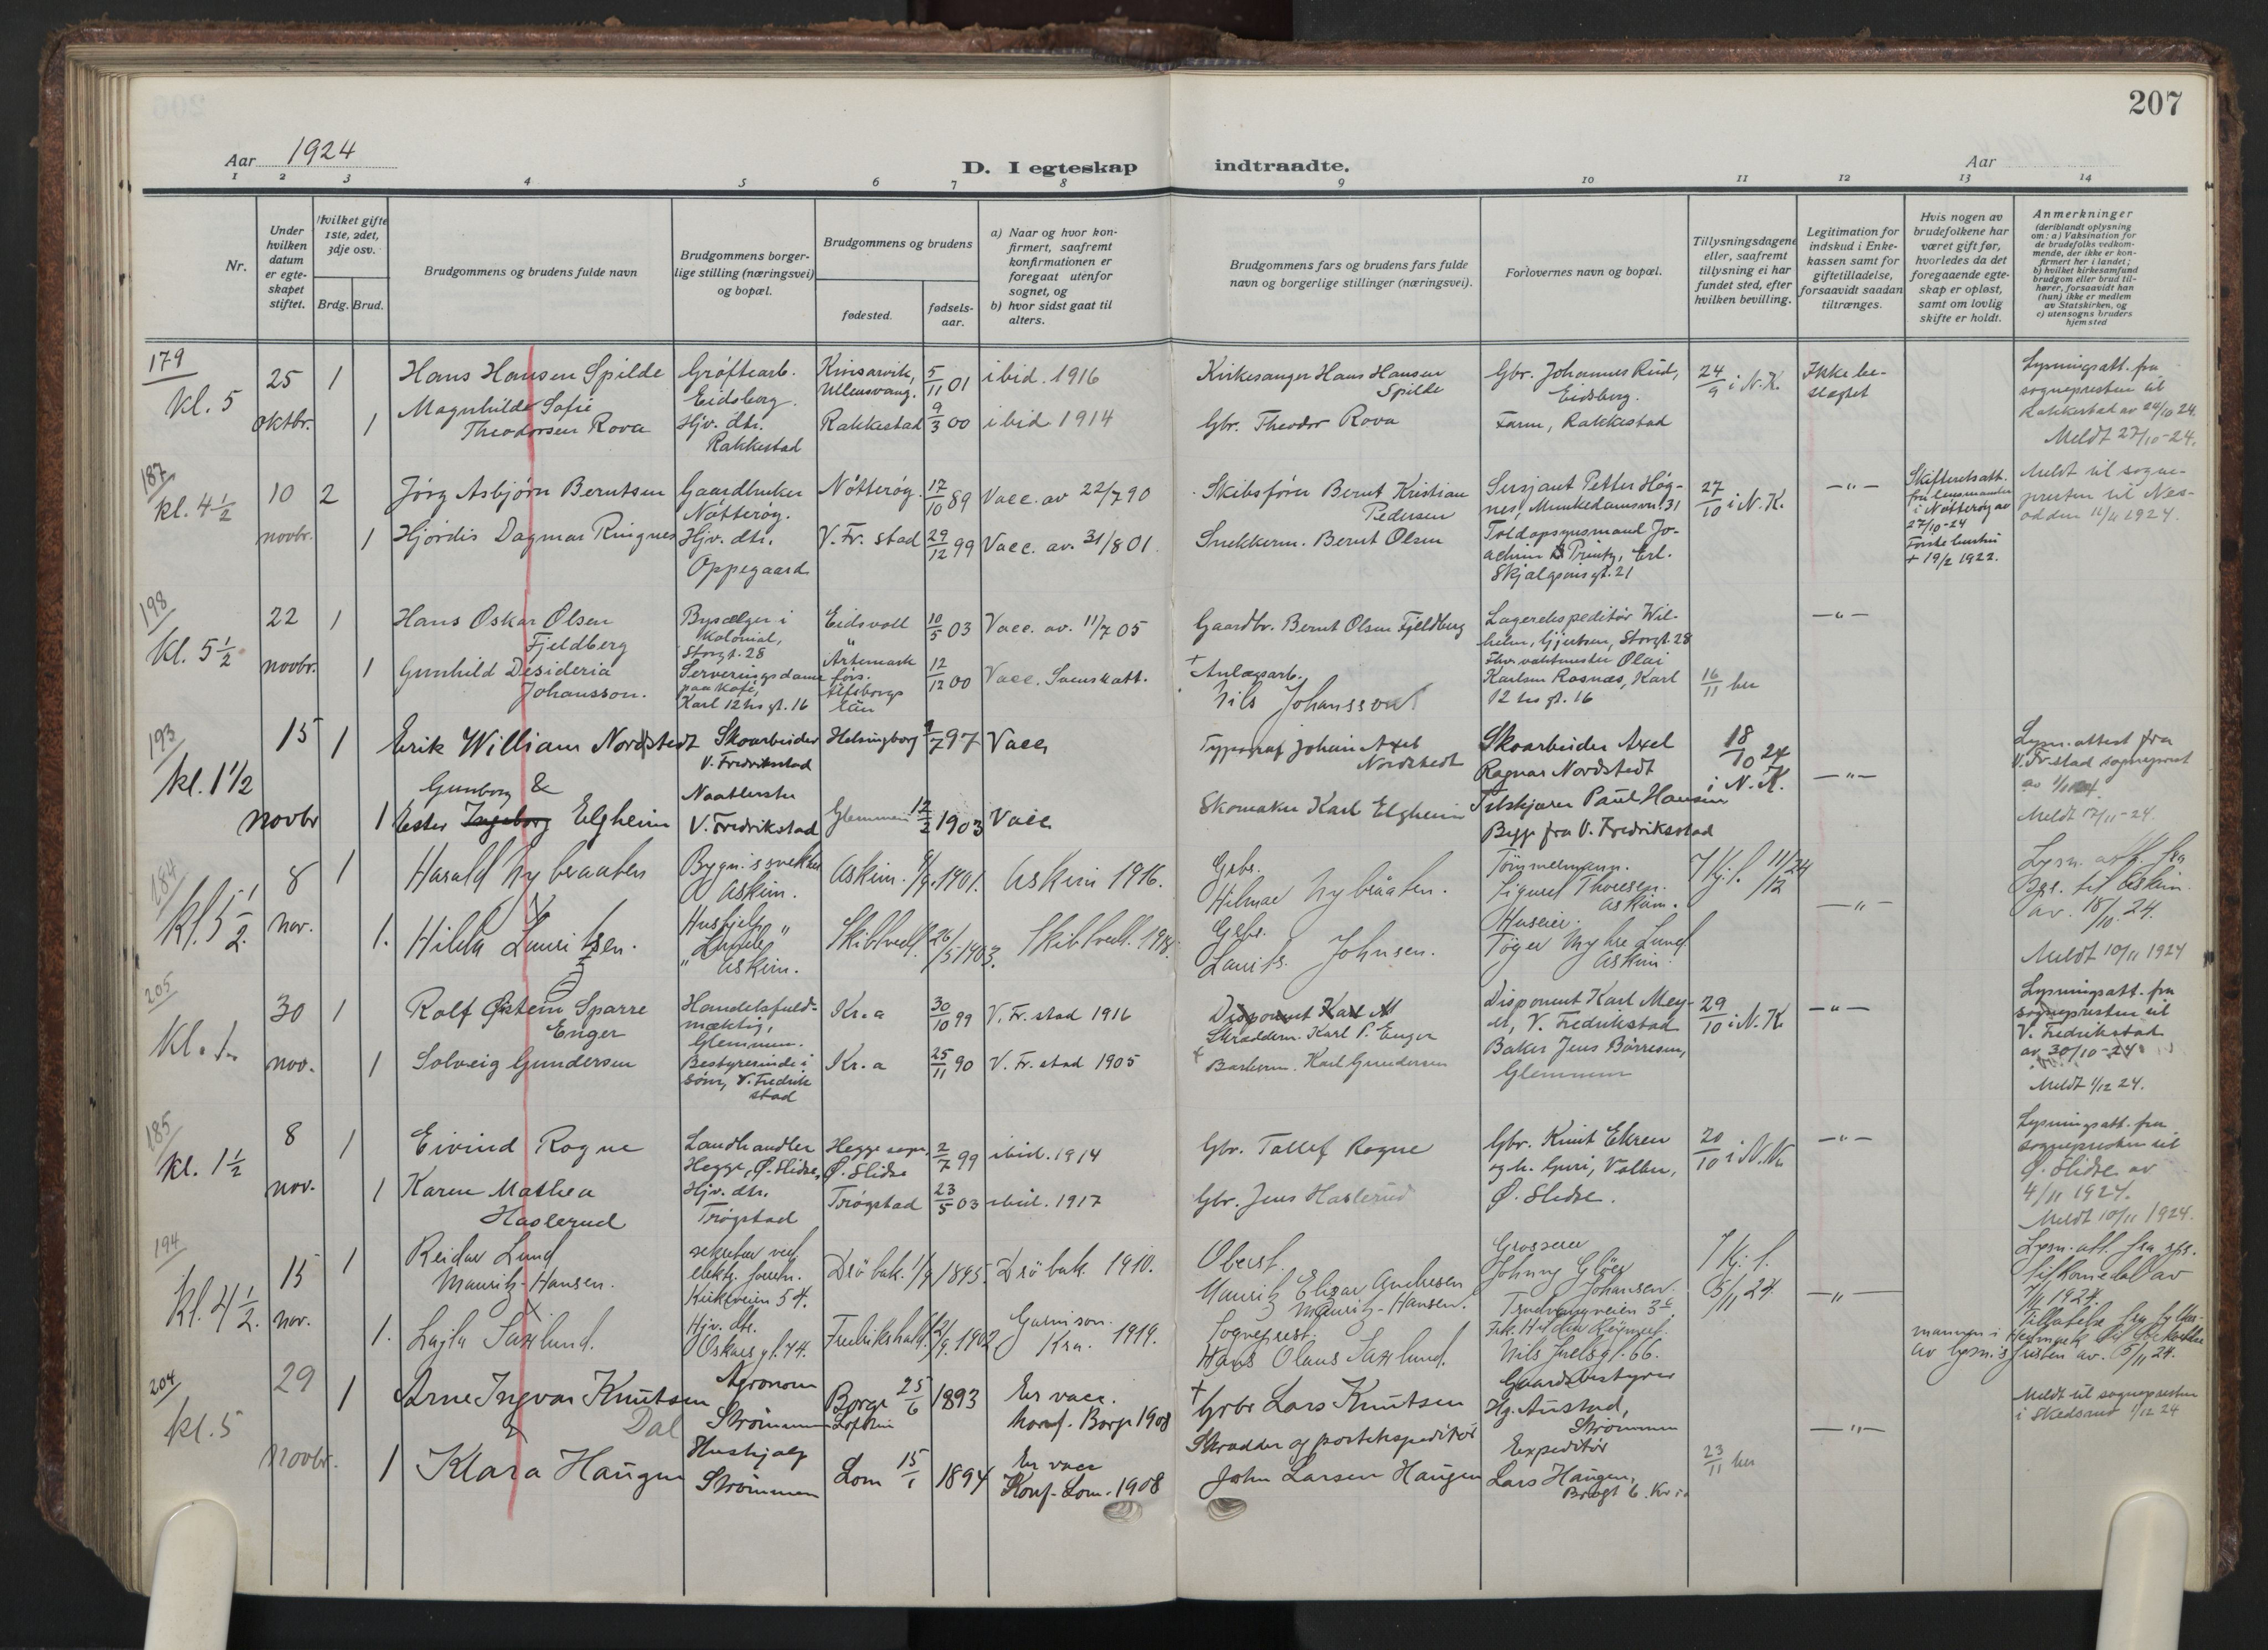 207
Aar 1924
D. I egteskap indtraadte.
Aar
1 2 3 4 5 6 7 8 9 10 11 12 13 14
Nr.
Under
hvilken
datum
er egte-
skapet
stiftet.
Hvilket gifte
1ste, 2det,
3dje osv.
Brdg. Brud.
Brudgommens og brudens fulde navn
Brudgommens borger-
lige stilling (næringsvei)
og bopæl.
Brudgommens og brudens
fødested.
fødsels-
aar.
a) Naar og hvor kon-
firmert, saafremt
konfirmationen er
foregaat utenfor
sognet, og
b) hvor sidst gaat til
alters.
Brudgommens fars og brudens fars fulde
navn og borgerlige stillinger (næringsvei).
Forlovernes navn og bopæl.
Tillysningsdagene
eller, saafremt
tillysning ei har
fundet sted, efter
hvilken bevilling.
Legitimation for
indskud i Enke-
kassen samt for
giftetilladelse,
forsaavidt saadan
tiltrænges.
Hvis nogen av
brudefolkene har
været gift før,
hvorledes da det
foregaaende egte-
skap er opløst,
samt om lovlig
skifte er holdt.
Anmerkninger
(deriblandt oplysning
om: a) Vaksination for
de brudefolks vedkom-
mende, der ikke er kon-
firmert her i landet;
b) hvilket kirkesamfund
brudgom eller brud til-
hører, forsaavidt han
(hun) ikke er medlem
av Statskirken, og
c) utensogns bruders
hjemsted
179
kl. 5
25
oktbr.
1
Hans Hansen Spilde
Grøftearb.
Eidsberg.
Kinsarvik,
Ullensvang.
5/11 01
ibid. 1916
Kirkesanger Hans Hansen
Spilde
Gbr. Johannes Rud,
Eidsberg.
24/9 i N.K.
Ikke be-
slegtet
Lysningsatt. fra
sognepresten til
Rakkestad av 24/10 24.
Meldt 27/10-24.
1
Magnhilde Sofie
Theodorsen Rova
Hjv. dtr.
Rakkestad
Rakkestad
9/3 00
ibid 1914
Gbr. Theodor Rova
Farm, Rakkestad
187
kl. 4 1/2
10
novbr.
2
Jörg Asbjörn Berntsen
Gaardbruker
Nötteröy.
Nötteröy
17/10 89
Vacc. av 22/7 90
Skibsfører Bernt Kristian
Pedersen
Sersjant Petter Høg-
nes, Munkedamsvn. 31
27/10 i N.K.
-"-
Skifteretsatt.
fra lensmanden
i Nøtterøy av
27/10-24
Første hustru
+ 19/2 1922.
Meldt til sogne-
presten til Nes-
odden 11/11 1924.
1
Hjördis Dagmar Ringnes
Hjv. dtr.
Oppegaard
V. Fr. stad
29/12 99
Vacc. av. 31/8 01.
Snekkerm. Bernt Olsen
Toldopsynsmand Jo-
achim Printz, Erl.
Skjalgsons gt. 21
198
kl. 5 1/2
22
novbr.
1
Hans Oskar Olsen
Fjeldberg
Bysælger i
Kolonial,
Storgt. 28
Eidsvoll
10/5 03
Vacc. av. 11/7 05
Gaardbr. Bernt Olsen Fjeldberg
Lagerekspeditör Wil-
helm Gjertsen, Storgt. 28
-"-
1
Gunhild Desideria
Johansson.
Serveringsdame
paa kafé,
Karl 12tes gt. 16
Ärtemark
förs.
Älfsborgs
län
12/12 00
Vacc. Svensk att.
+ Anlægsarb.
Nils Johansson
vaktmester Olai
Karlsen Rosnæs, Karl
12 tes gt. 16
16/11 her
193
kl. 1 1/2
15
novbr
1
Erik William Nordstedt
Skoarbeider
V. Fredrikstad
Helsingborg
9/7 97
Vacc
Typograf Johan Axel
Nordstedt
Skoarbeider Axel
Ragnar Nordstedt
18/10 24
i N.K.
-"-
Lysn. attest fra
V. Fr.stad sogneprest
Meldt 17/11-24.
Gunborg &
1
Ester Ingeborg Elgheim
Naatlerske
V. Fredrikstad
Glemmen
12/2 1903
Vacc
Skomaker Karl Elgheim
Paul Hansen
Bygg fra V. Fredriksstad
184
kl. 5 1/2.
8
nov.
1
Harald Nybraaten
Askim.
Askim.
1901.
Askim 1916.
Grbr.
Hilmar Nybråten.
Tömmermann.
Sigurd Thoresen.
Askim.
-"-
Lysn. att. fra
til Askim
av. 18/10. 24.
Meldt 10/11 1924
1.
Hilda Lauritzen.
Hushjelp
" Askim.
Skiptvedt
26/5 1903.
Skiptvedt. 1918.
Grbr.
Laurits Johnsen.
Huseier.
Töger Myhre Lund
Askim.
205
Kl. 1
30
nov.
1
Rolf Øistein Sparre
Enger
Handelsfuld-
mæktig,
Glemmen.
Kr.a
30/10 99
V. Fr. stad 1916
Disponent Karl M
Skrædderm. Karl P. Enger
Disponent Karl Mey-
er, V. Fredrikstad
29/10 i N.K
-"-
Lysningsatt. fra
sognepresten til
V. Fredrikstad
av 30/10-24
Meldt 1/12 24.
1
Solveig Gundersen
Bestyrerinde i
søm, V. Fredrik
stad
Kr.a
25/11 90
V. Fr. stad 1905
+ Karl Gundersen
Baker Jens Börresen,
Glemmen
185
kl. 1 1/2
8
nov.
1
Eivind Rogne
Landhandler
Hegge, Ø. Slidre,
Hegge sogn,
Ø. Slidre
2/7 99
ibid. 1914
Gbr. Tollef Rogne
Gbr. Knut Ekren
og h. Guri, Volbu,
Ø. Slidre.
20/10 i N.K.
-"-
Lysningsatt. fra
sognepresten til
Ø. Slidre av
4/11 1924.
Meldt 10/11 1924.
1
Karen Mathea
Haslerud
Hjv. dtr.
Trøgstad
Trøgstad
23/5 03
ibid. 1917
Gbr. Jens Haslerud
194
kl. 4 1/2.
15
nov.
1
Reidar Lund
Mauritz-Hansen.
sekretær ved
elektr. foretn.
Kirkeveien 54.
Drøbak
1/9 1895.
Drøbak 1910.
Oberst.
Mauritz Elisar Andresen
Mauritz-Hansen.
Grosserer
Johnny Gløer
Johansen.
5/11 24
-"-
Lysn. att. fra
til Romedal av
7/11 1924.
Tillatelse fra fylkes-
mannen i Hedmark
av lysn.s fristen av. 5/11 24.
1.
Lajla Saxlund.
Hjv. dtr.
Oskars gt. 74.
Fredrikshald.
1902
Garnison.
Kra. 1919.
Sogneprest.
Hans Olaus Saxlund.
Nils Juelsgt. 66.
204
kl. 5
29
novbr.
1
Arne Ingvar Knutsen
Dal
Agronom
Strömmen
Borge
Lofoten
25/6 1893
Er vacc.
konf. Borge 1908
+ Grbr Lars Knutsen
Gaardsbestyrer
Hg. Austad,
Strömmen
-"-
Meldt til sognepresten
i Skedsmo 1/12 24
1
Klara Haugen
Hushjelp
Strömmen
Lom
15/1 1894
Er vacc
Konf. Lom. 1908
Skrædder og postekspeditör
John Larsen Haugen
Expeditör
Lars Haugen,
23/11 her